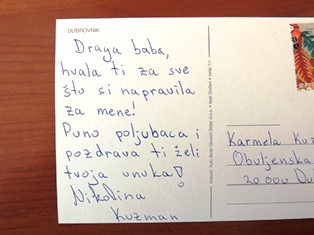 DUBROVNIK
Draga baba,
hvala ti za sve
što si napravila
za mene!
Puno poljubaca i
pozdrava ti želi
tvoja unuka!
Nikolina
Kuzman
Karmela Kuz
Obuljenska
20 000 Du